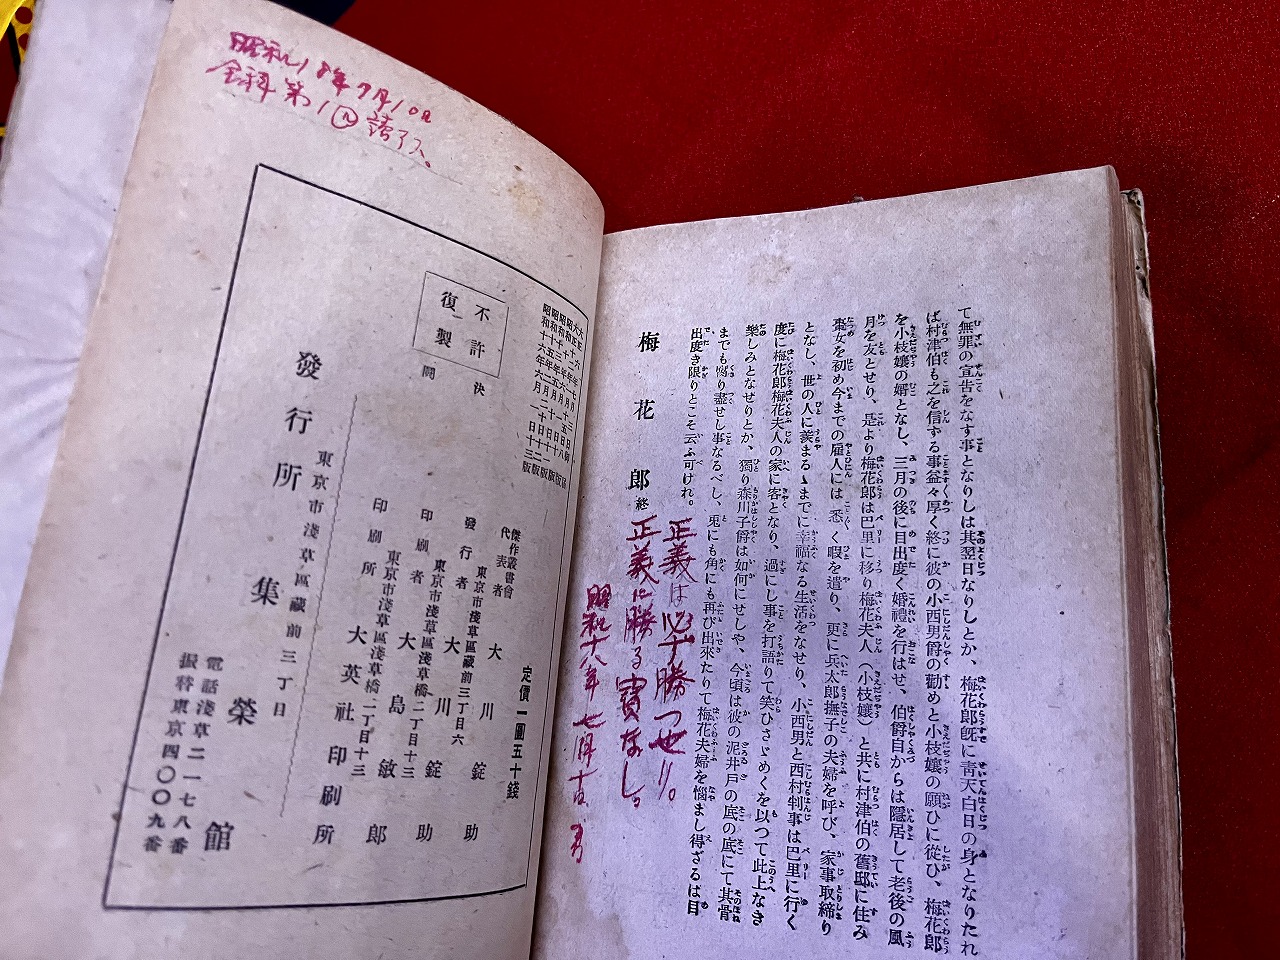 て無罪の宣告をなす事となりしは其翌日なりしとか、梅花郎既に靑天白日の身となりたれ
ば村津伯も之を信ずる事益々厚く終に彼の小西男爵の勸めと小枝孃の願ひに從ひ、梅花郎
を小枝孃の婿となし、三月の後に目出度く婚禮を行はせ、伯爵自からは隱居して老後の風
月を友とせり、是より梅花郎は巴里に移り梅花夫人（小枝孃）と共に村津伯の舊邸に住み
棗女を初め今までの雇人には悉く暇を遣り、更に兵太郎撫子の夫婦を呼び、家事取締り
となし、世の人に羨まるゝまでに幸福なる生活をなせり、小西男と西村判事は巴里に行く
度に梅花郎梅花夫人の家に客となり、過にし事を打語りて笑ひさゞめくを以つて此上なき
樂しみとなせりとか、獨り森川子爵は如何にせしや、今頃は彼の泥井戸の底の底にて其骨
までも腐り盡せし事なるべし、兎にも角にも再び出來たりて梅花夫婦を惱まし得ざるは目
出度き限りとこそ云ふ可けれ。
梅花郎 終
正義は必ず勝つ世り。
正義に勝る寶なし。
昭和十八年七月十日
昭和18年7月10日
全科第1回讀了ス。
不許
復製
決
鬪
定價一圓五十錢
傑作叢書會
代表者 大川錠助
東京市淺草區藏前三丁目六
發行者 大川錠助
東京市淺草區淺草橋二丁目十三
印刷者 大島敏郎
東京市淺草區淺草橋二丁目十三
印刷所 大英社印刷所
東京市淺草區藏前三丁目
發行所 集榮館
電話淺草二一七八番
振替東京四〇〇九番